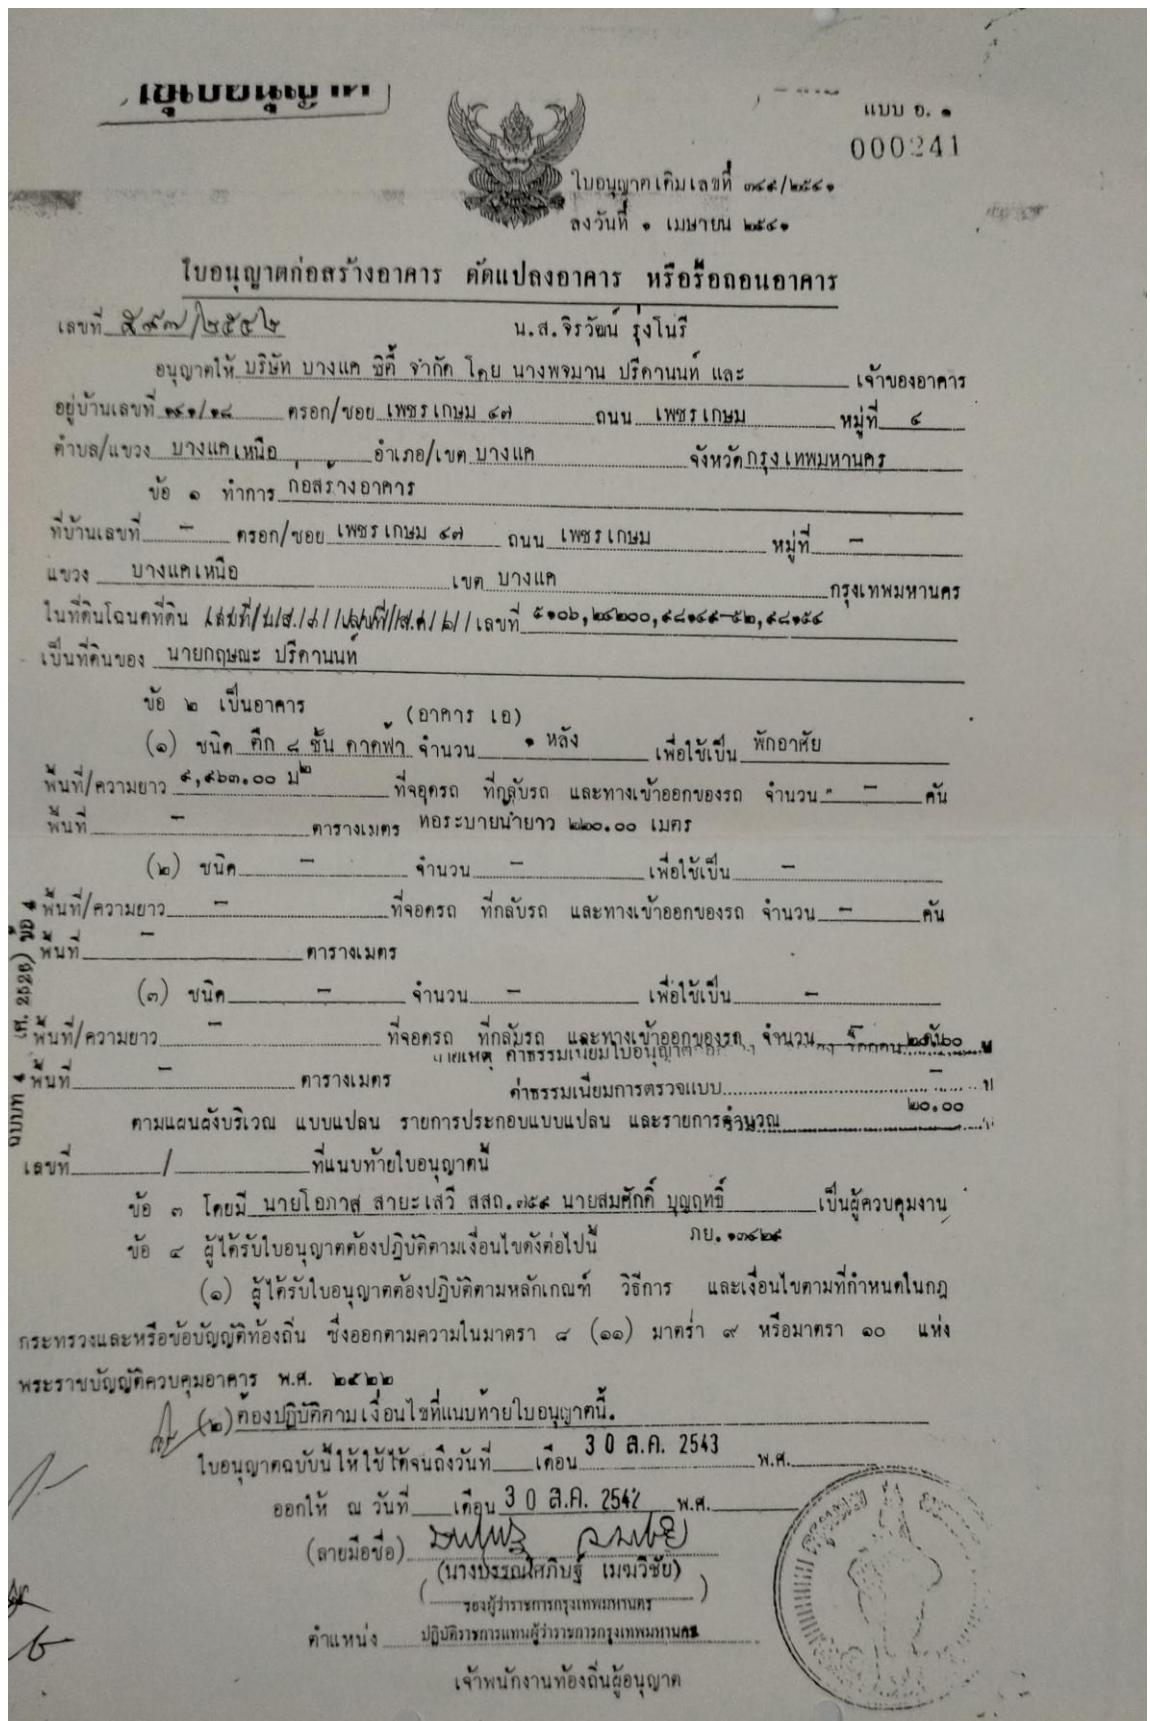 แบบ อ. ๑
000241
ใบอนุญาตเดิมเลขที่ ๓๔๙/๒๕๔๑
ลงวันที่ ๑ เมษายน ๒๕๔๑
ใบอนุญาตก่อสร้างอาคาร ดัดแปลงอาคาร หรือรื้อถอนอาคาร
เลขที่ ๕๙๗/๒๕๔๒ น.ส.จิรวัฒน์ รุ่งโนรี
อนุญาตให้ บริษัท บางแค ซิตี้ จำกัด โดย นางพจมาน ปรีดานนท์ และ เจ้าของอาคาร
อยู่บ้านเลขที่ ๑๙๑/๑๘ ตรอก/ซอย เพชรเกษม ๔๗ ถนน เพชรเกษม หมู่ที่ ๔
ตำบล/แขวง บางแคเหนือ อำเภอ/เขต บางแค จังหวัดกรุงเทพมหานคร
ข้อ ๑ ทำการ ก่อสร้างอาคาร
ที่บ้านเลขที่ - ตรอก/ซอย เพชรเกษม ๔๗ ถนน เพชรเกษม หมู่ที่ -
แขวง บางแคเหนือ เขต บางแค กรุงเทพมหานคร
ในที่ดินโฉนดที่ดิน เลขที่ ๕๑๐๖,๒๔๒๐๐,๙๘๑๔๙-๕๒,๙๘๑๕๔
เป็นที่ดินของ นายกฤษณะ ปรีดานนท์
ข้อ ๒ เป็นอาคาร (อาคาร เอ)
(๑) ชนิด ตึก ๘ ชั้น ดาดฟ้า จำนวน ๑ หลัง เพื่อใช้เป็น พักอาศัย
พื้นที่/ความยาว ๙,๙๖๓.๐๐ ม๒ ที่จอดรถ ที่กลับรถ และทางเข้าออกของรถ จำนวน - คัน
พื้นที่ - ตารางเมตร ท่อระบายน้ำยาว ๒๒๐.๐๐ เมตร
(๒) ชนิด - จำนวน - เพื่อใช้เป็น -
พื้นที่/ความยาว - ที่จอดรถ ที่กลับรถ และทางเข้าออกของรถ จำนวน - คัน
พื้นที่ - ตารางเมตร
(๓) ชนิด - จำนวน - เพื่อใช้เป็น -
พื้นที่/ความยาว - ที่จอดรถ ที่กลับรถ และทางเข้าออกของรถ จำนวน - คัน ๒๐.๐๐
ค่าธรรมเนียมใบอนุญาต
พื้นที่ - ตารางเมตร ค่าธรรมเนียมการตรวจแบบ -
ตามแผนผังบริเวณ แบบแปลน รายการประกอบแบบแปลน และรายการคำนวณ ๒๐.๐๐
เลขที่ / ที่แนบท้ายใบอนุญาตนี้
ข้อ ๓ โดยมี นายโอภาส สายะเสวี สสถ.๓๕๙ นายสมศักดิ์ บุญฤทธิ์ เป็นผู้ควบคุมงาน
ข้อ ๔ ผู้ได้รับใบอนุญาตต้องปฏิบัติตามเงื่อนไขดังต่อไปนี้ ภย.๑๓๔๒๙
(๑) ผู้ได้รับใบอนุญาตต้องปฏิบัติตามหลักเกณฑ์ วิธีการ และเงื่อนไขตามที่กำหนดในกฎ
กระทรวงและหรือข้อบัญญัติท้องถิ่น ซึ่งออกตามความในมาตรา ๘ (๑๑) มาตรา ๙ หรือมาตรา ๑๐ แห่ง
พระราชบัญญัติควบคุมอาคาร พ.ศ. ๒๕๒๒
(๒) ต้องปฏิบัติตามเงื่อนไขที่แนบท้ายใบอนุญาตนี้.
ใบอนุญาตฉบับนี้ให้ใช้ได้จนถึงวันที่ เดือน 30 ส.ค. 2543 พ.ศ.
ออกให้ ณ วันที่ เดือน 30 ส.ค. 2542 พ.ศ.
(ลายมือชื่อ)
(นางบรรณโศภิษฐ์ เมฆวิชัย)
รองผู้ว่าราชการกรุงเทพมหานคร
ตำแหน่ง ปฏิบัติราชการแทนผู้ว่าราชการกรุงเทพมหานคร
เจ้าพนักงานท้องถิ่นผู้อนุญาต